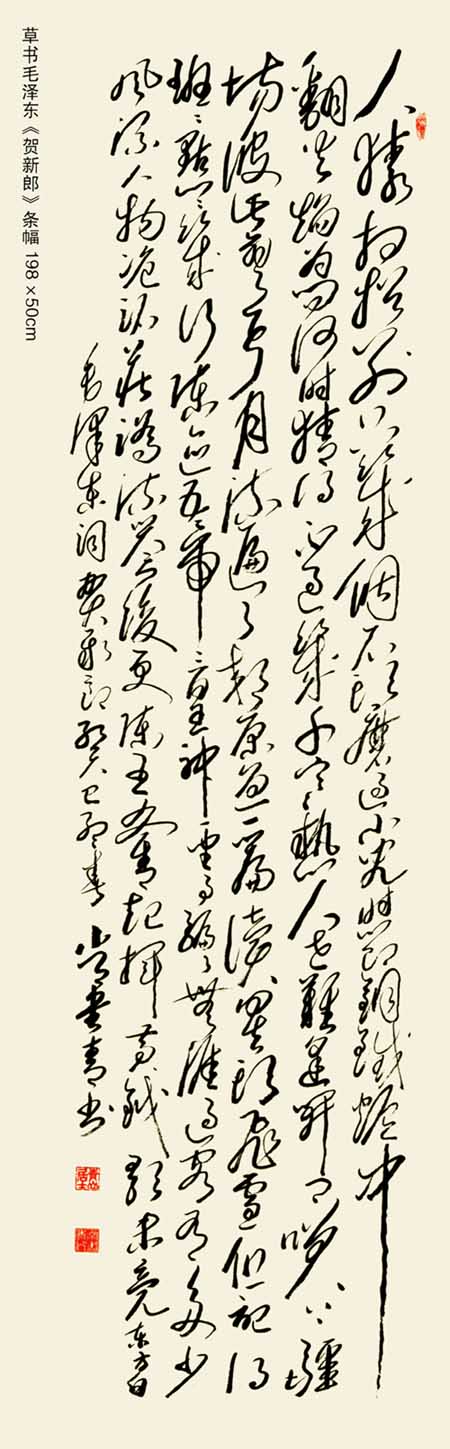 草书毛泽东《贺新郎》条幅 198×50cm
人猿相揖别只几個石头磨过小儿时节銅鐵炉中
翻火焰为问何时猜得不过几千寒热人世難逢开口笑上疆
场彼此弯弓月流遍了郊原血一篇读罢头飞雪但記得
斑斑点点几行陈迹五帝三皇神圣事騙了無涯过客有多少
风流人物盗跖莊蹻流誉后更陈王奋起挥黄鉞歌未竟东方白
毛泽东词贺新郎癸巳孟春
书